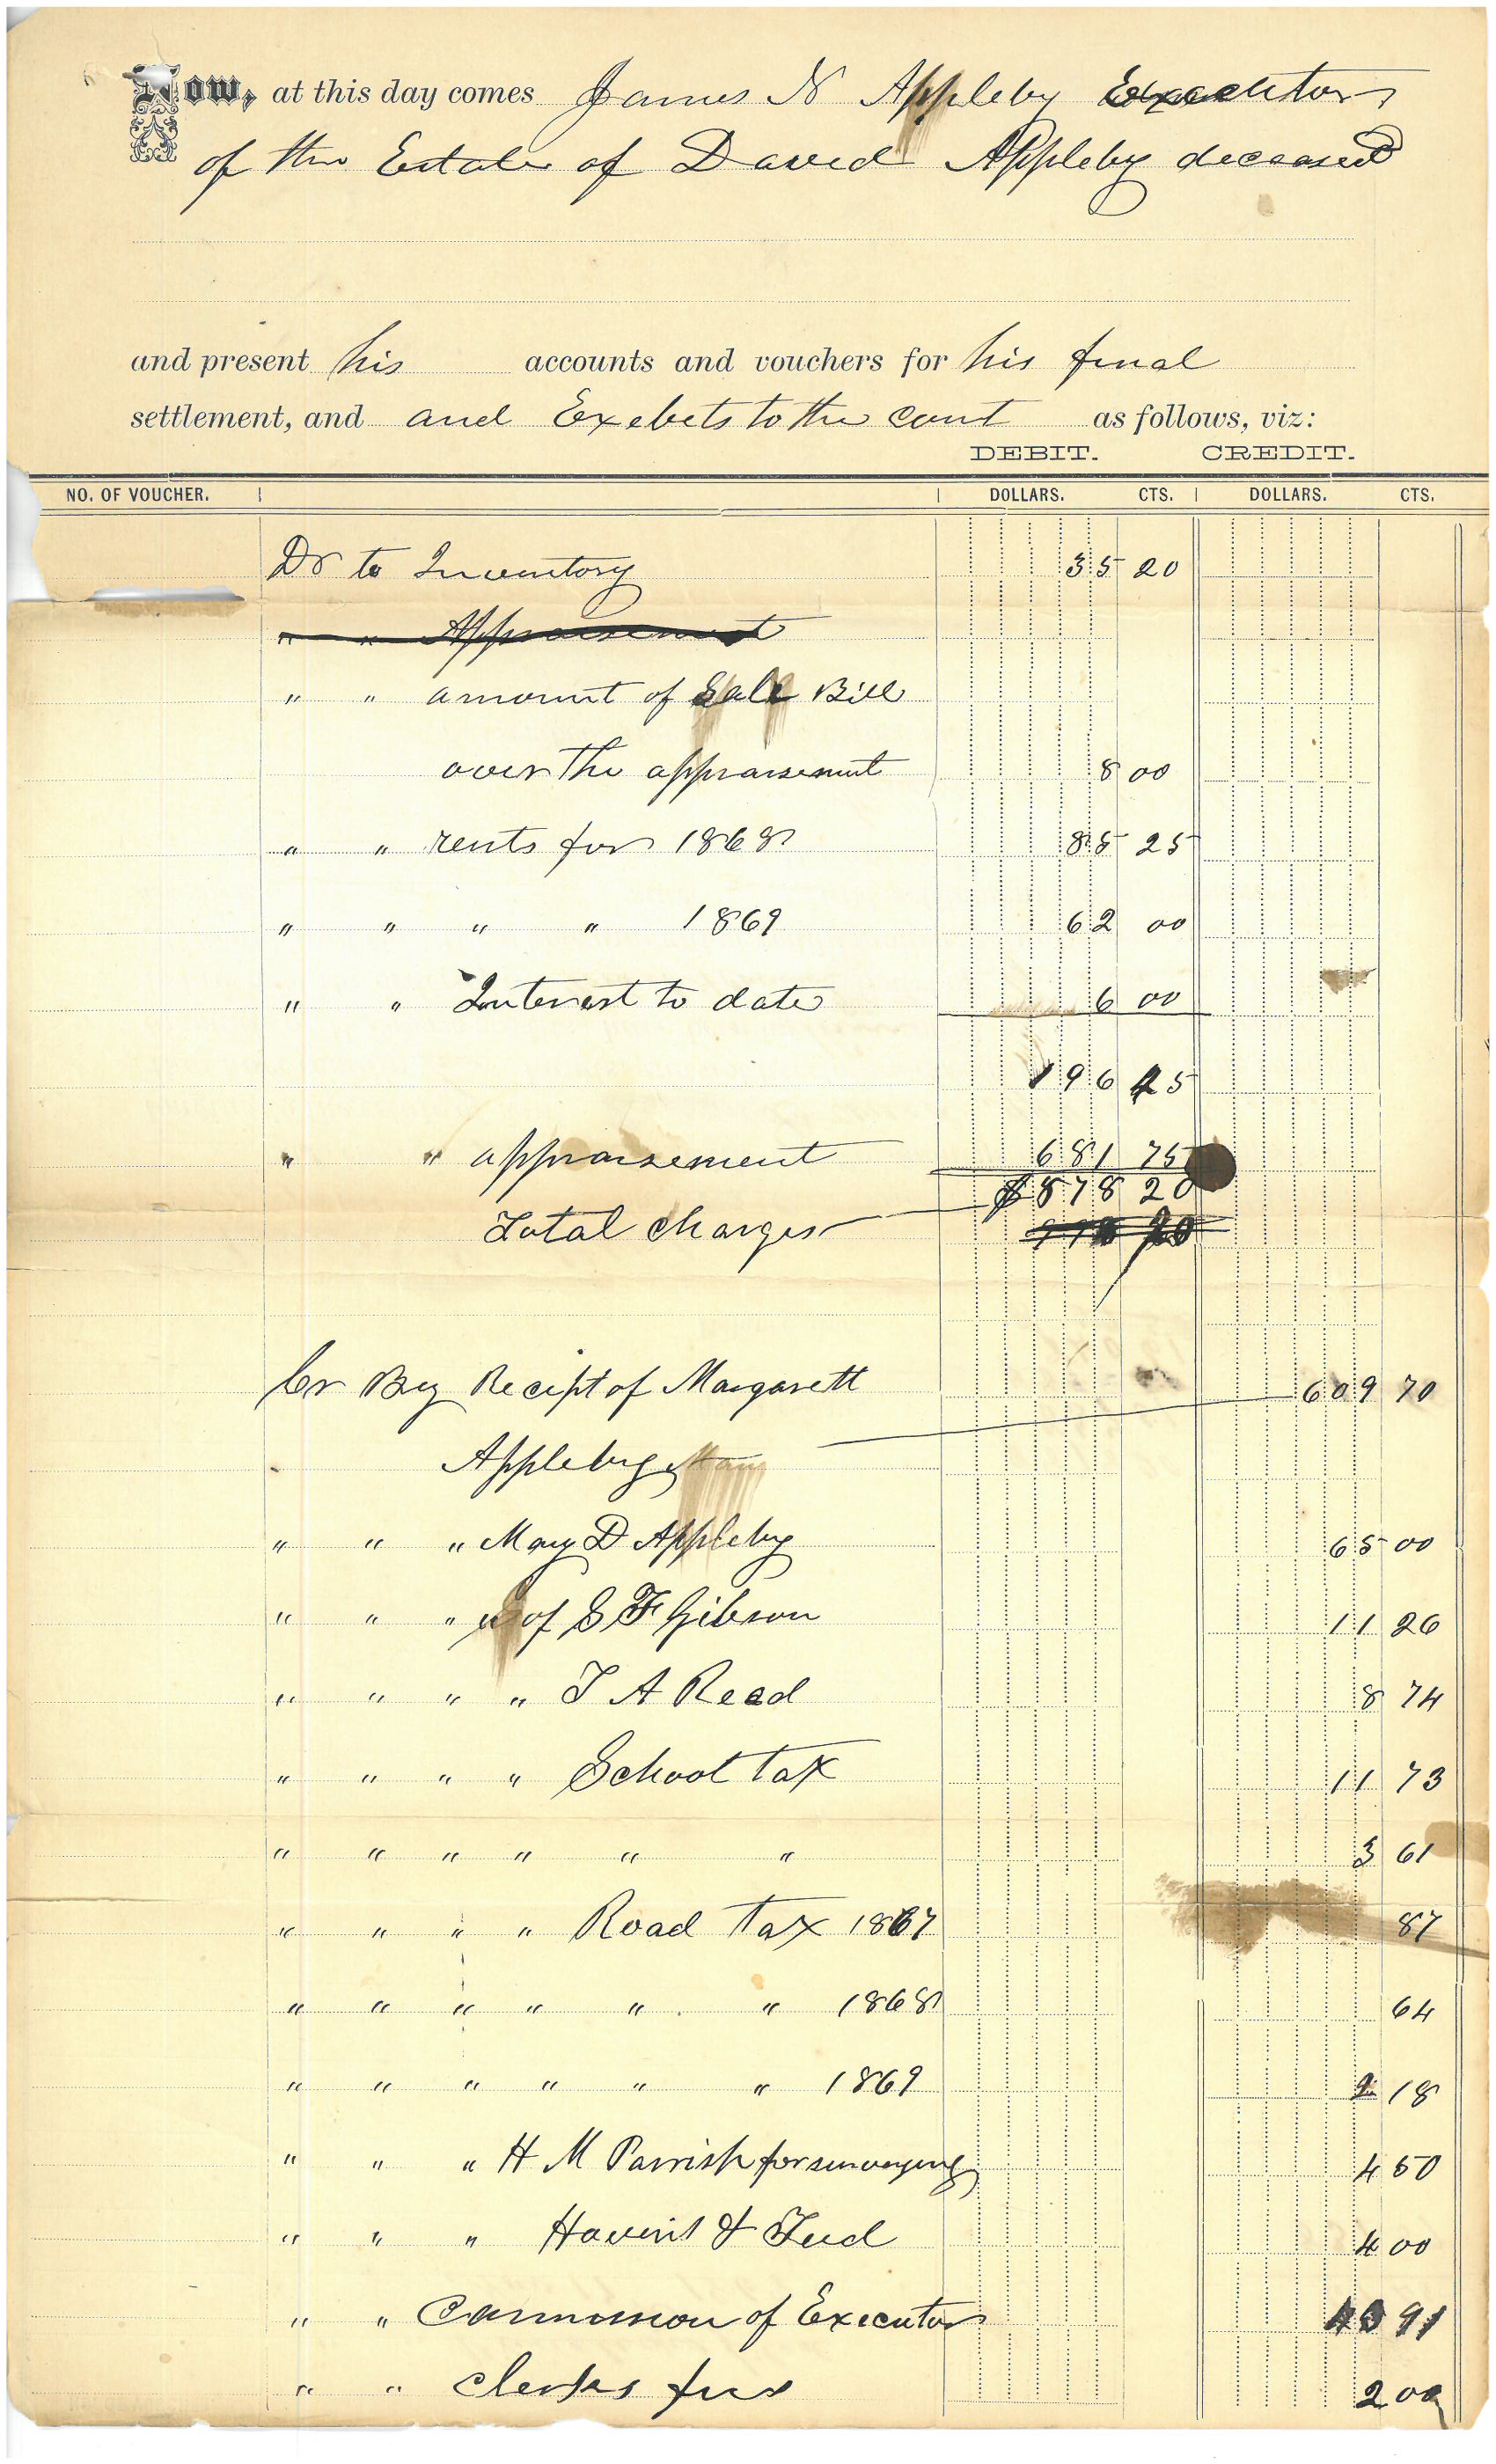 Now, at this day comes James N Appleby Executor
of the Estate of David Appleby deceased
and present his accounts and vouchers for his final
settlement, and and Exebets to the Court as follows, viz:
DEBIT. CREDIT.
NO. OF VOUCHER. DOLLARS. CTS. DOLLARS. CTS.
Dr to Inventory 35 20
" " Appraisement
" " amount of Sale Bill
over the appraisement 8 00
" " rents for 1868 85 25
" " " " 1869 62 00
" " Interest to date 6 00
196 45
" " appraisement 681 75
$878 20
Total Charges
Cr By Recipt of Margarett 609 70
Appleby
" " " Mary D Appleby 65 00
" " " " of S F Gibson 11 26
" " " " T A Read 8 74
" " " " School Tax 11 73
" " " " " " 3 61
" " " " Road Tax 1867 87
" " " " " " 1868 64
" " " " " " 1869 2 18
" " " H M Parrish for surveying 4 50
" " " Havens & Tud 4 00
" " Commission of Executor 43 91
" " Clerks fees 2 00